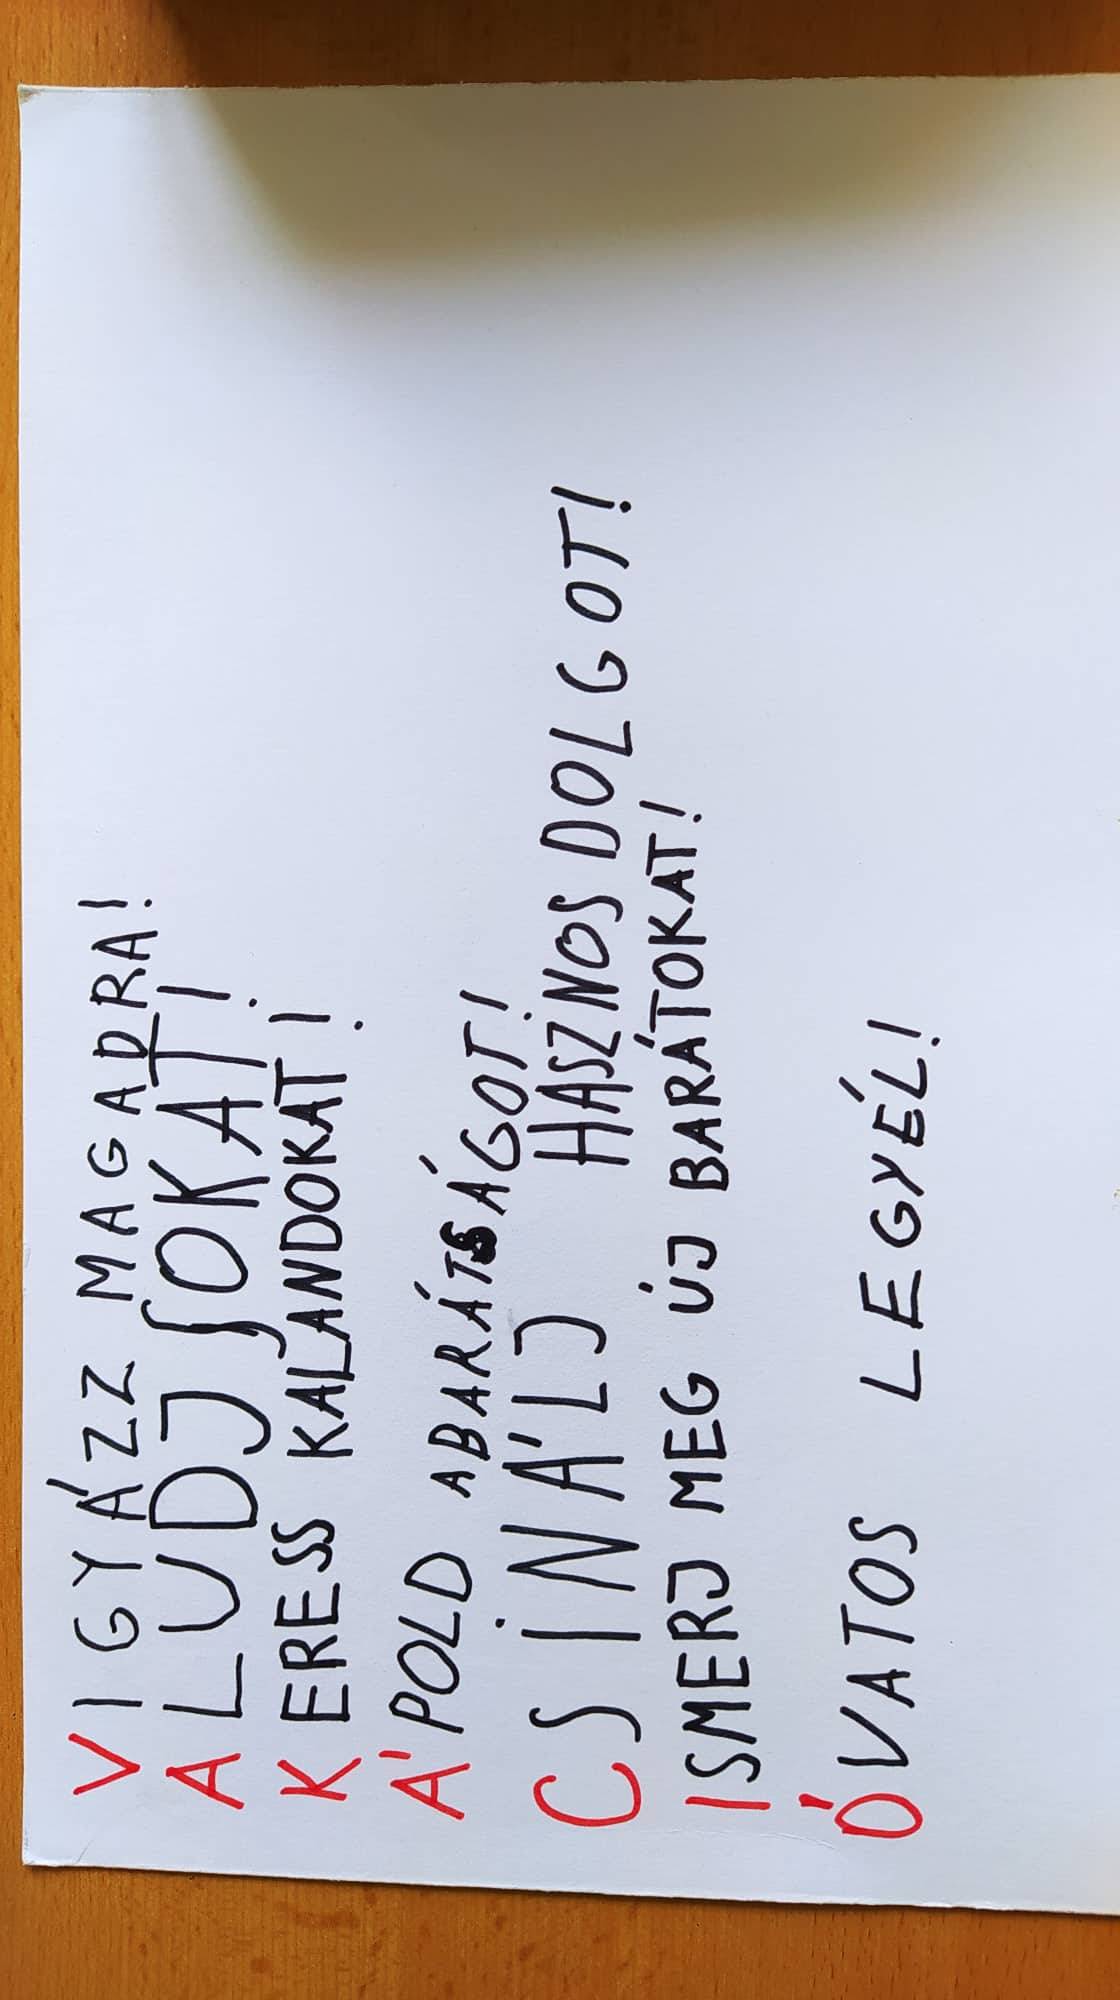 VIGYÁZZ MAGADRA!
ALUDJ SOKAT!
KERESS KALANDOKAT!
ÁPOLD ABARÁTSÁGOT!
CSINÁLJ HASZNOS DOLGOT!
ISMERJ MEG ÚJ BARÁTOKAT!
ÓVATOS LEGYÉL!